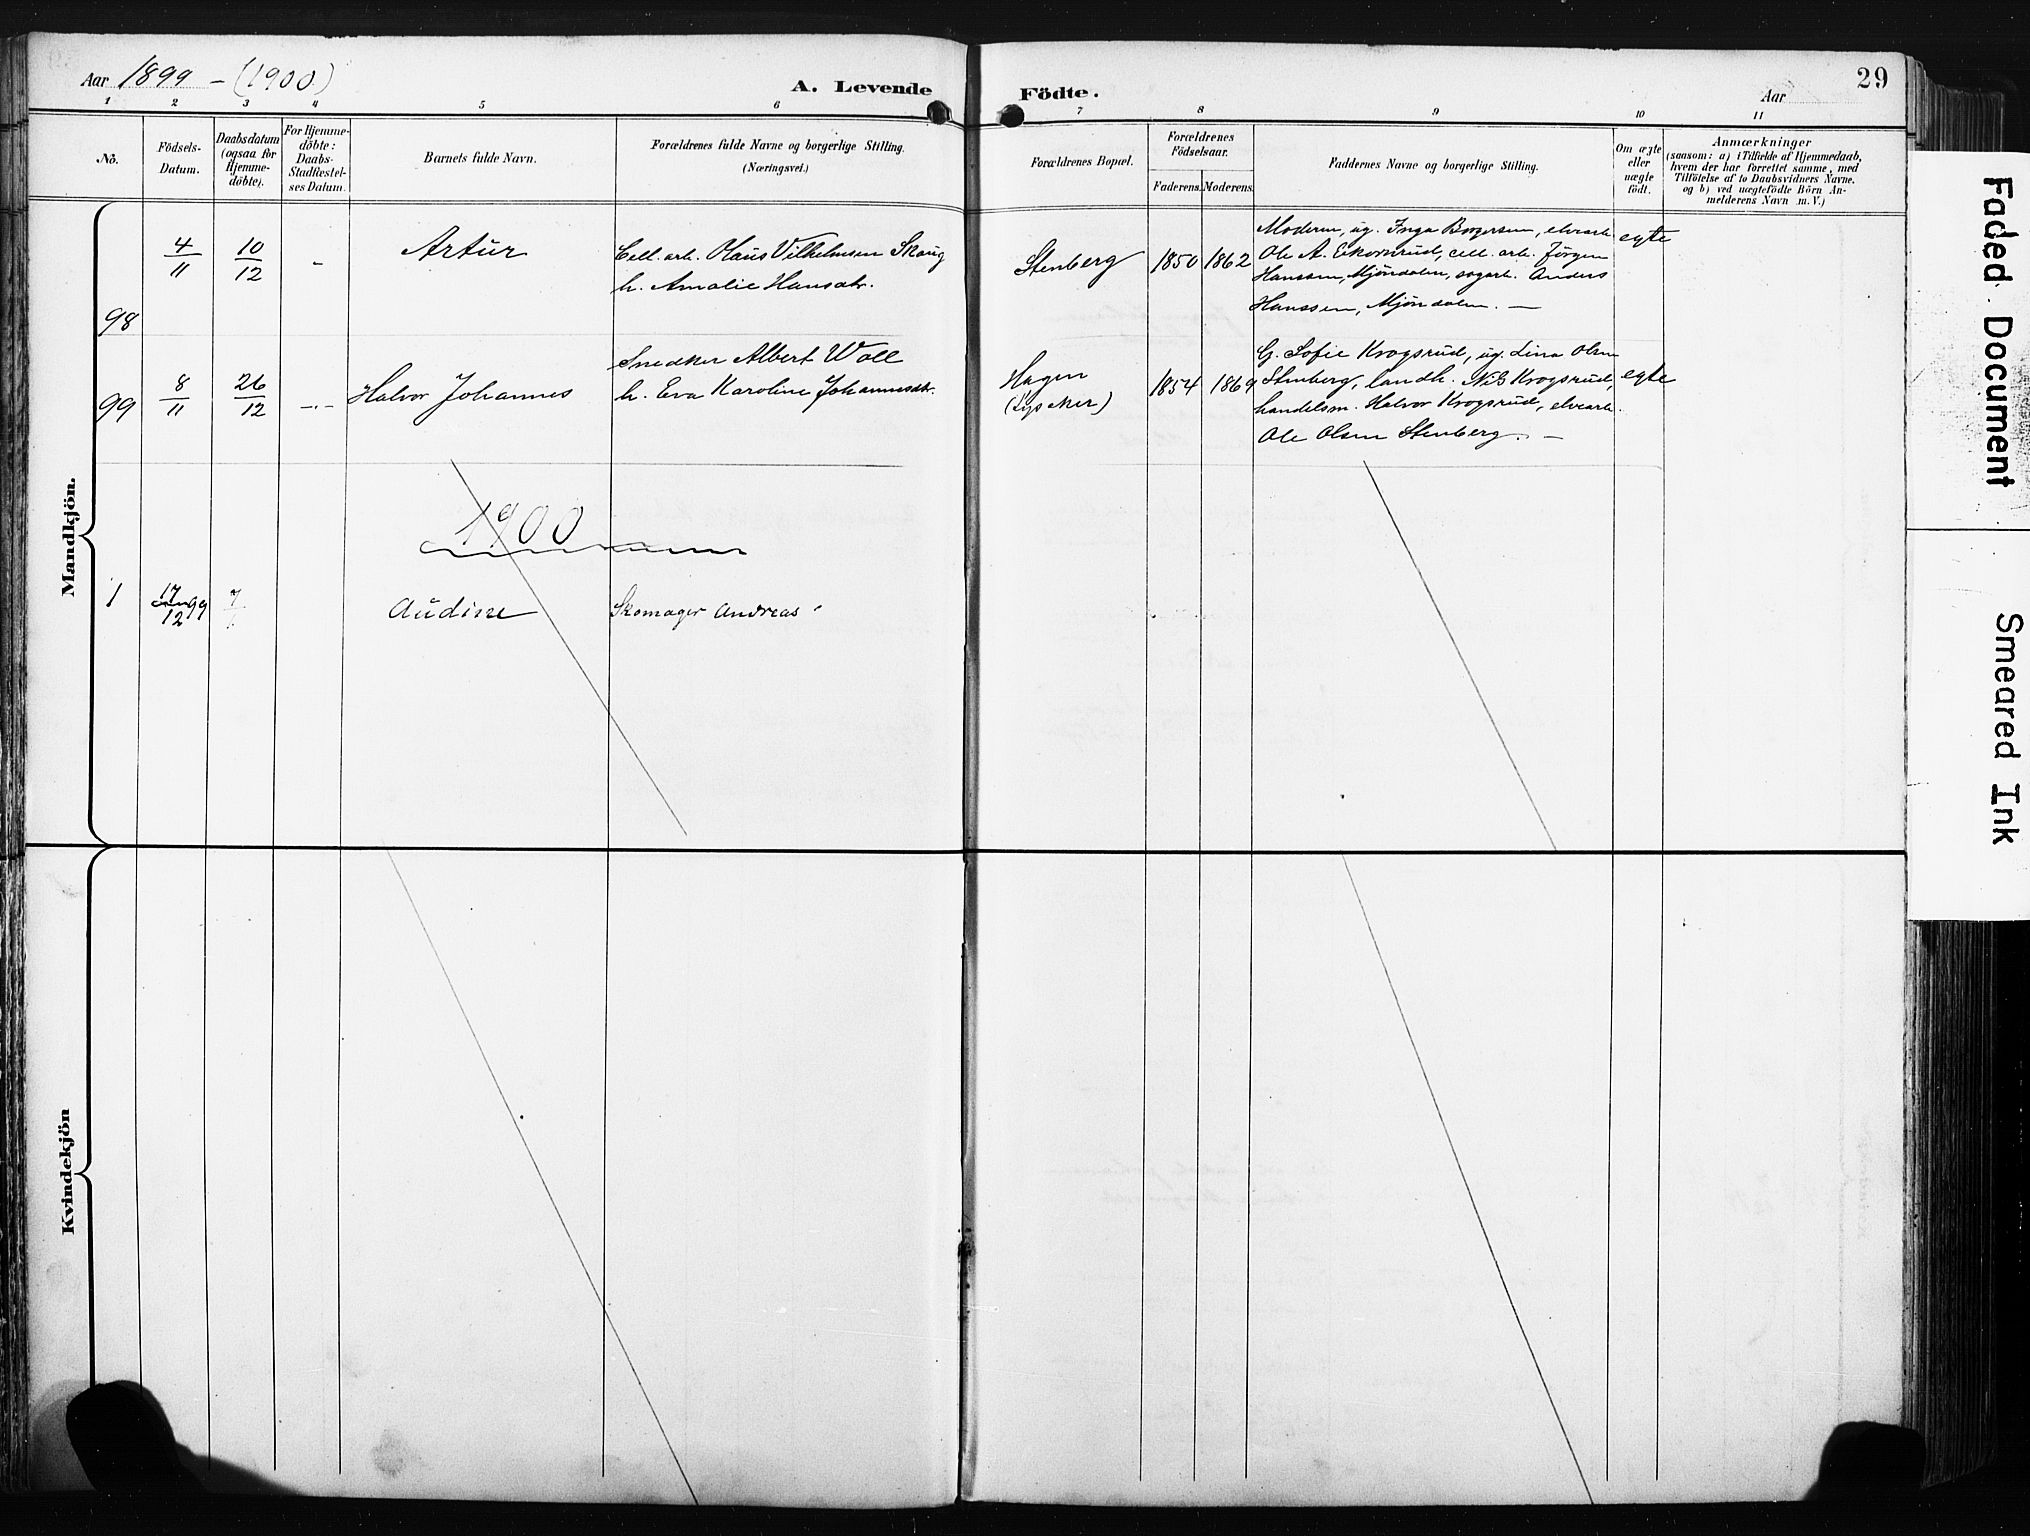 Aar 1899 - (1900)
A. Levende Födte.
Aar
29
1 2 3 4 5 6 7 8 9 10 11
No.
Födsels-
Datum.
Daabsdatum
(ogsaa for
Hjemme-
döbte).
For Hjemme-
döbte:
Daabs-
Stadfæstel-
ses Datum.
Barnets fulde Navn.
Forældrenes fulde Navne og borgerlige Stilling.
(Næringsvei.)
Forældrenes Bopæl.
Forældrenes
Födselsaar.
Faderens. Moderens.
Faddernes Navne og borgerlige Stilling.
Om ægte
eller
uægte
födt.
Anmærkninger
(saasom: a) i Tilfælde af Hjemmedaab,
hvem der har forrettet samme, med
Tilföielse af to Daabsvidners Navne,
og b) ved uægtefödte Börn An-
melderens Navn m. V.)
Mandkjön.
98
4/11
10/12
-
Artur
Cell. arb. Olaus Vilhelmsen Skaug
h. Amalie Hansdtr.
Stenberg
1850
1862
Moderen, ug. Inga Borgersen, elvearb.
Ole A. Ekornrud, cell. arb. Jørgen
Hanssen, Mjöndalen, sagarb. Anders
Hanssen, Mjöndalen. —
egte
99
8/11
26/12
-.-
Halvor Johannes
Snedker Albert Woll
h. Eva Karoline Johannesdtr.
Hagen
(Lysaker)
1854
1869
G. Sofie Krogsrud, ug. Lina Olsen
Stenberg, landh. Nils Krogsrud,
handelsm. Halvor Krogsrud, elvearb.
Ole Olsen Stenberg. —
egte
1900
1
17/12 99
7
Audine
Skomager Andreas
Kvindekjön
Faded Document
Smeared Ink